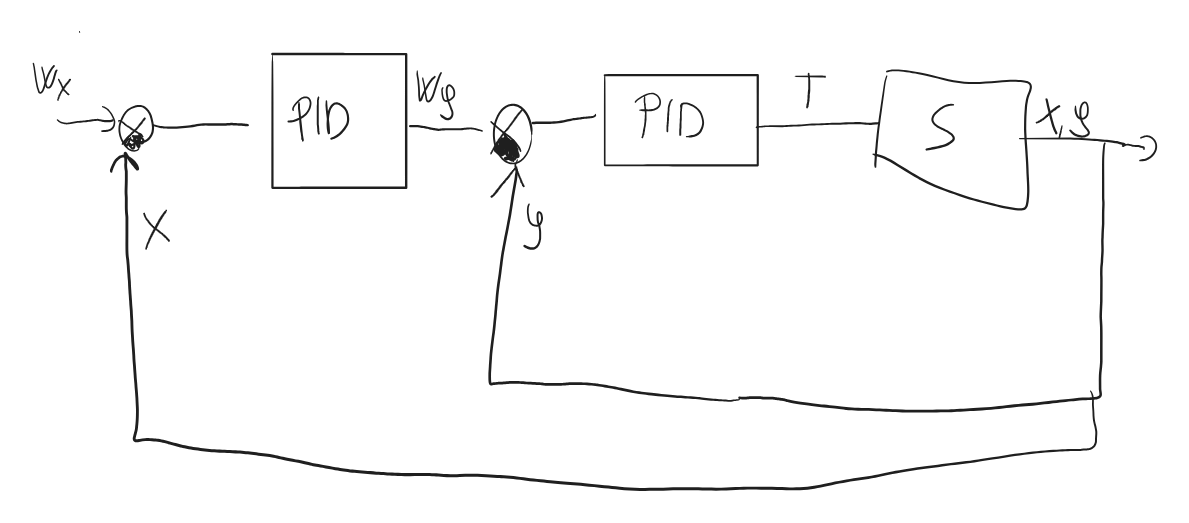 Wx
PID
Wφ
PID
T
S
X, φ
X
φ